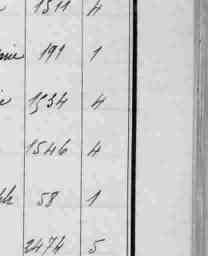 1311 4
191 1
1534 4
1546 4
58 1
2474 5